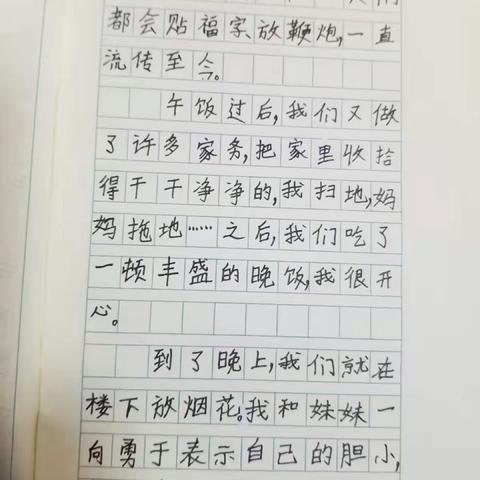 都会贴福字、放鞭炮,一直
流传至今。
午饭过后,我们又做
了许多家务,把家里收拾
得干干净净的,我扫地,妈
妈拖地……之后,我们吃了
一顿丰盛的晚饭,我很开
心。
到了晚上,我们就在
楼下放烟花。我和妹妹一
向勇于表示自己的胆小,